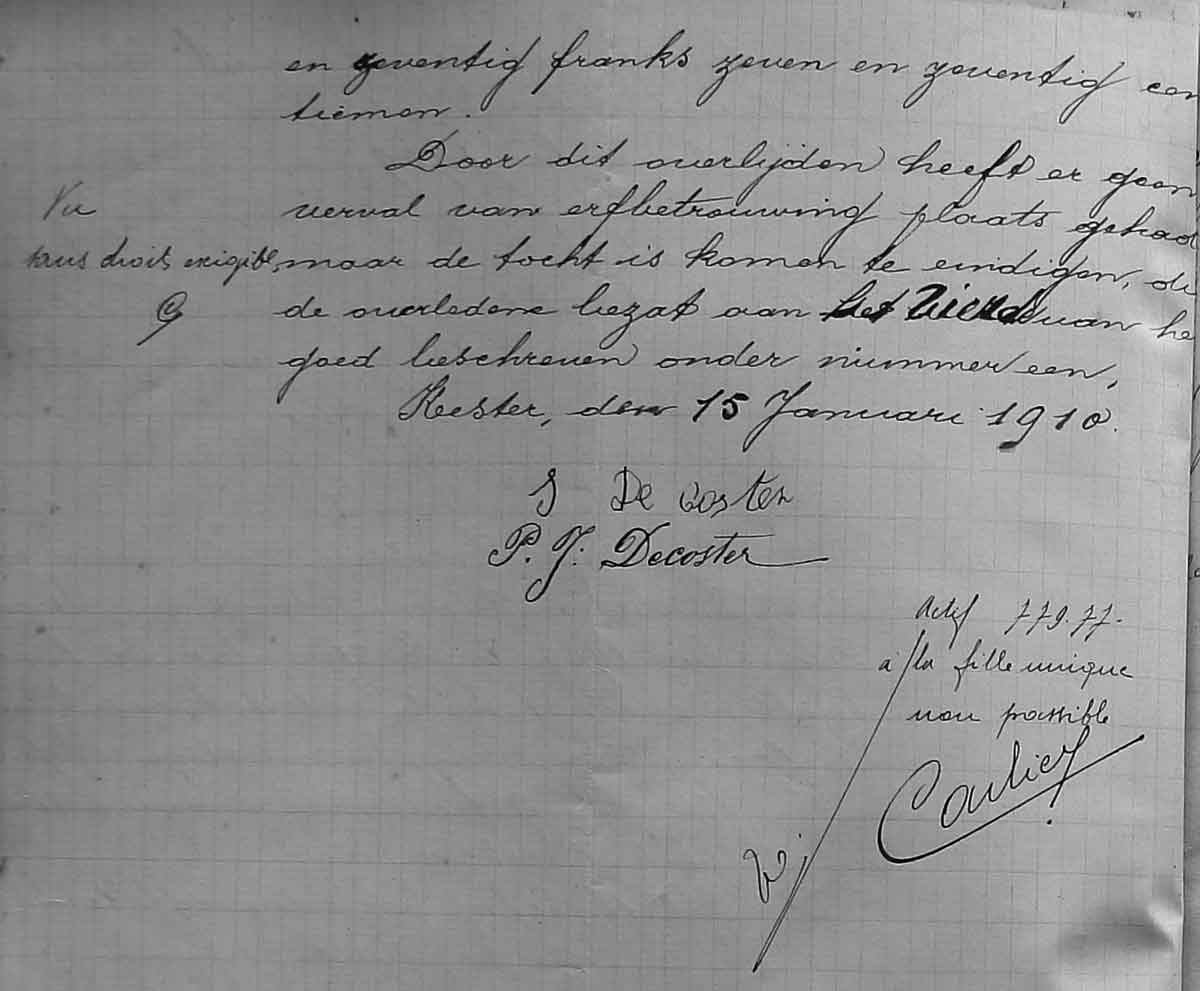 en zeventig franks zeven en zeventig cen
tiemen.
Door dit overlijden heeft er geen
verval van erfbetrouwing plaats gehad
maar de tocht is komen te eindigen, di
de overledene bezat aan het vierde van he
goed beschreven onder nummer een,
Kester, den 15 Januari 1910.
Vu
sans droits exigibles
S De Coster
P. J. Decoster
Actif 779.77.
à la fille unique
non passible
Carlier